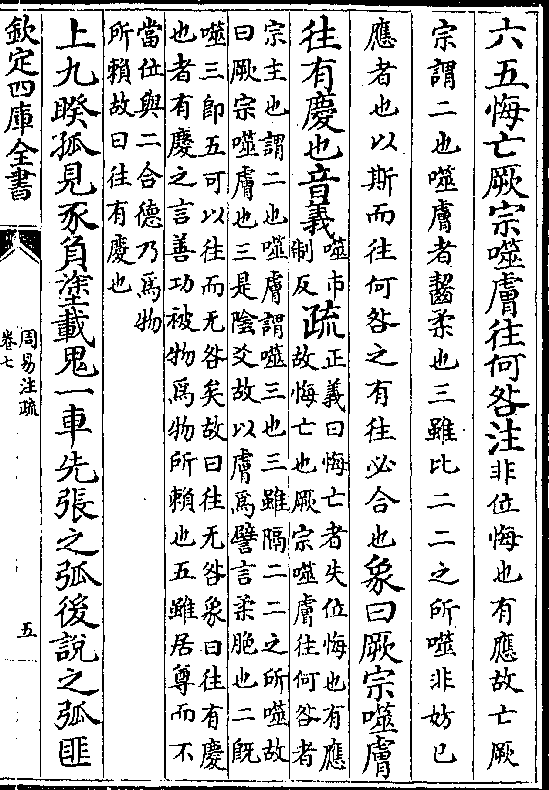 六五悔亡厥宗噬膚往何咎注非位悔也有應故亡厥
宗謂二也噬膚者齧柔也三雖比二二之所噬非妨已
應者也以斯而往何咎之有往必合也象曰厥宗噬膚
往有慶也音義噬市制反疏正義曰悔亡者失位悔也有應故悔亡也厥宗噬膚往何咎者
宗主也謂二也噬膚謂噬三也三雖隔二二之所噬故
曰厥宗噬膚也三是陰爻故以膚為譬言柔脆也二旣
噬三即五可以往而无咎矣故曰往无咎象曰往有慶
也者有慶之言善功被物為物所賴也五雖居尊而不
當位與二合德乃為物
所賴故曰往有慶也
上九睽孤見豕負塗載鬼一車先張之弧後說之弧匪
欽定四庫全書
周易注疏
卷七
五